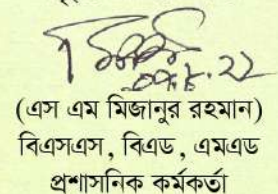 (এস এম মিজানুর রহমান)
বিএসএস, বিএড, এমএড
প্রশাসনিক কর্মকর্তা